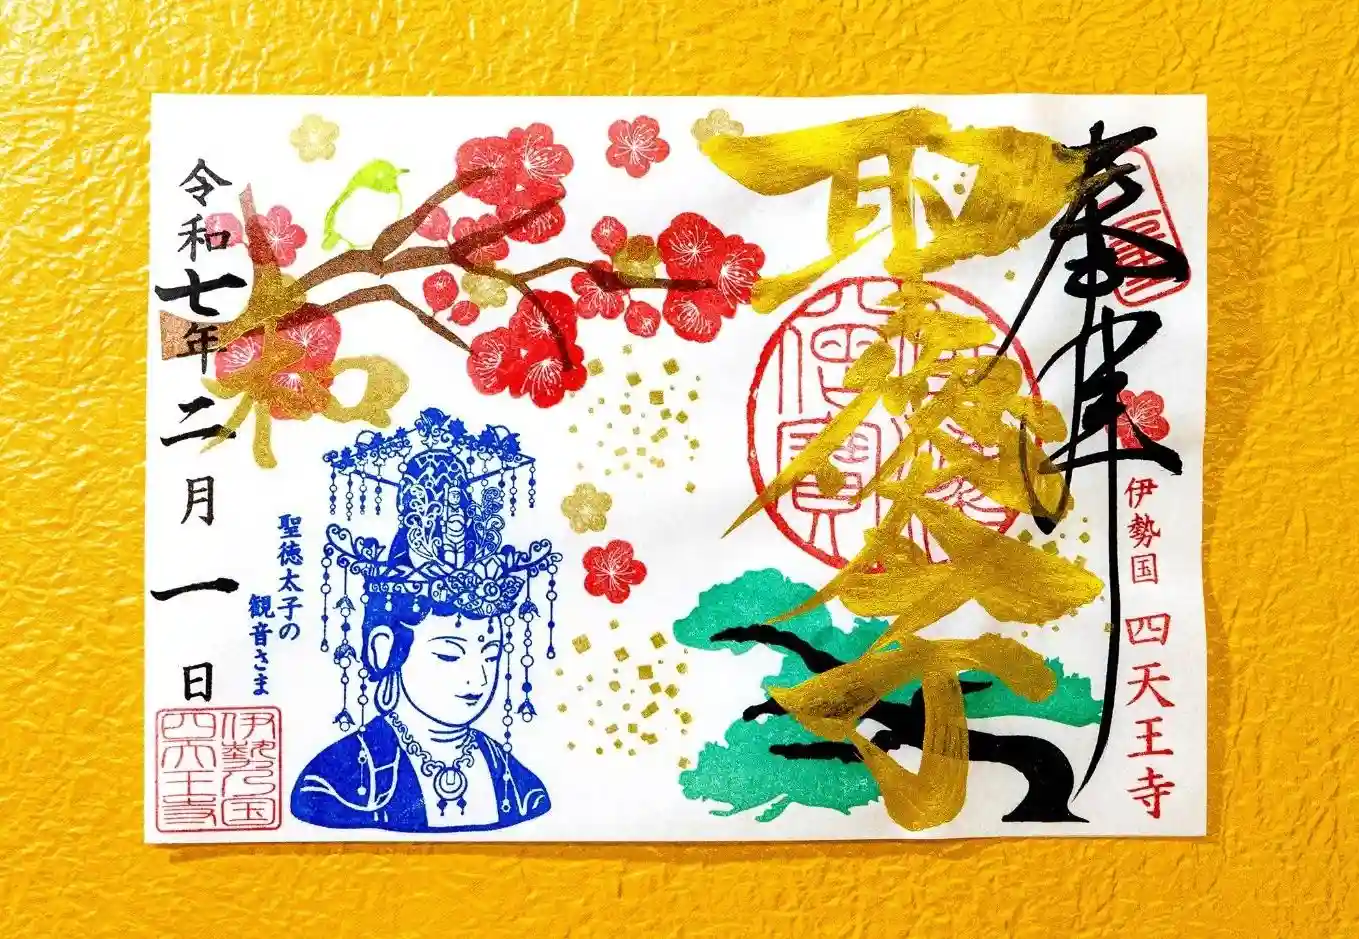 奉拝
伊勢国 四天王寺
聖徳太子
仏法
僧寳
聖徳太子の
観音さま
和
令和七年二月一日
伊勢乃国
四天王寺